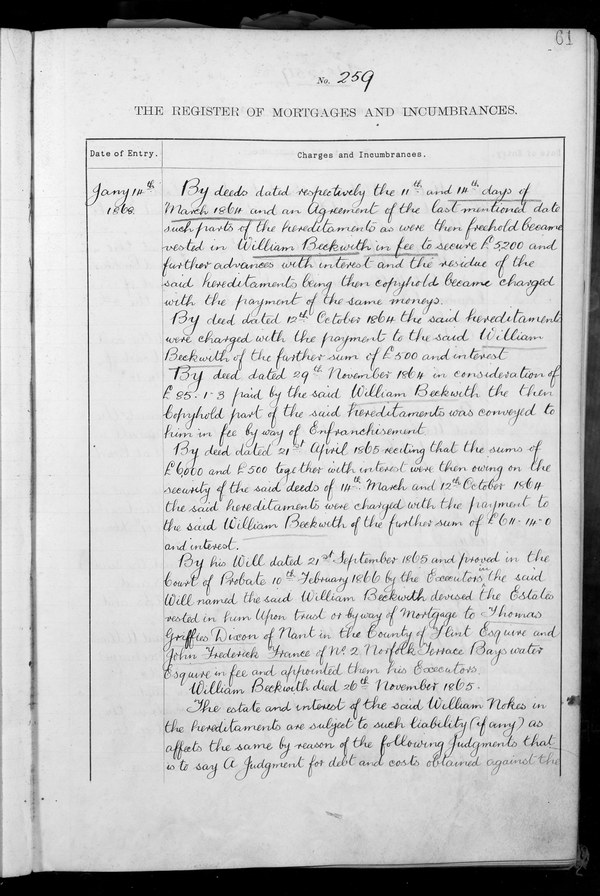 61
No. 259
THE REGISTER OF MORTGAGES AND INCUMBRANCES.
Date of Entry.
Charges and Incumbrances.
Jany 14th
1868
By deeds dated respectively the 11th and 14th days of
March 1864 and an Agreement of the last mentioned date
such parts of the hereditaments as were then freehold became
vested in William Beckwith in fee to secure £5,200 and
further advances with interest and the residue of the
said hereditaments being then copyhold became charged
with the payment of the same moneys.
By deed dated 12th October 1864 the said hereditaments
were charged with the payment to the said William
Beckwith of the further sum of £500 and interest
By deed dated 29th November 1864 in consideration of
£85.1.3 paid by the said William Beckwith the then
Copyhold part of the said hereditaments was conveyed to
him in fee by way of Enfranchisement
By deed dated 21st April 1865 reciting that the sums of
£6,000 and £500 together with interest were then owing on the
security of the said deeds of 14th March and 12th October 1864
the said hereditaments were charged with the payment to
the said William Beckwith of the further sum of £64.14.0
and interest.
By his Will dated 21st September 1865 and proved in the
Court of Probate 10th February 1866 by the Executors in the said
Will named the said William Beckwith devised the Estates
vested in him Upon trust or by way of Mortgage to Thomas
Griffies Dixon of Nant in the County of Flint Esquire and
John Frederick France of No 2 Norfolk Terrace Bayswater
Esquire in fee and appointed them his Executors.
William Beckwith died 26th November 1865.
The estate and interest of the said William Nokes in
the hereditaments are subject to such liability (if any) as
affects the same by reason of the following Judgments that
is to say A Judgment for debt and costs obtained against the